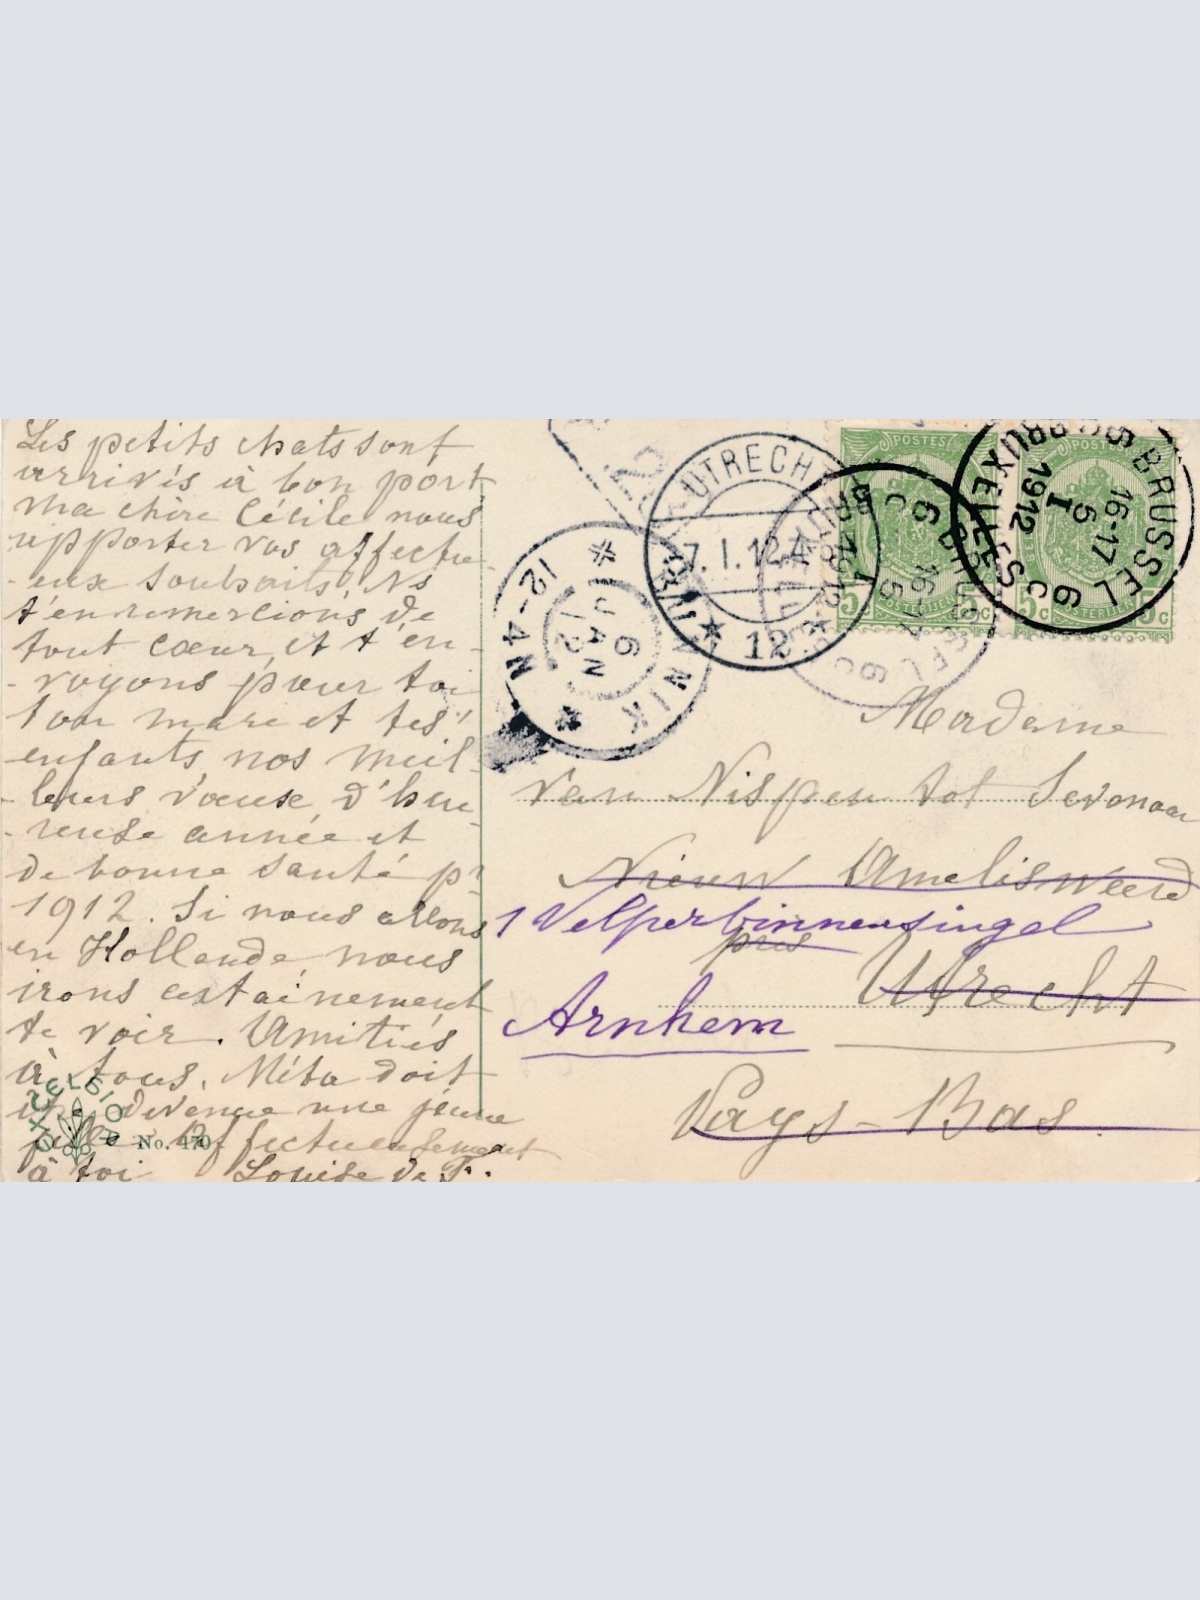 Les petits chats sont
arrivés à bon port
ma chère Cécile nous
apporter vos affectu-
-eux souhaits. Ns
t'en remercions, de
tout cœur, et t'en-
-voyons pour toi
ton mari et tes
enfants, nos meil-
-leurs vœux d'heu-
-reuse année et
de bonne santé pr
1912. Si nous allons
en Hollande, nous
irons certainement
te voir. Amitiés
à tous. Mita doit
être devenue une jeune
fille. Affectueusement
à toi Louise de P.
EXCELSIOR
No. 470
POSTES
POSTERIJEN
5c 5c
POSTES
POSTERIJEN
5c 5c
BRUSSEL 6 6c
16-17
5
I
1912
BRUXELLES
UTRECHT
7.I.12.
12
12-4N
6
JAN
12
BUNNIK
Madame
Van Nispen tot Sevenaer
Nieuw Amelisweerd
1 Velperbinnensingel
près
Utrecht
Arnhem
Pays-Bas.